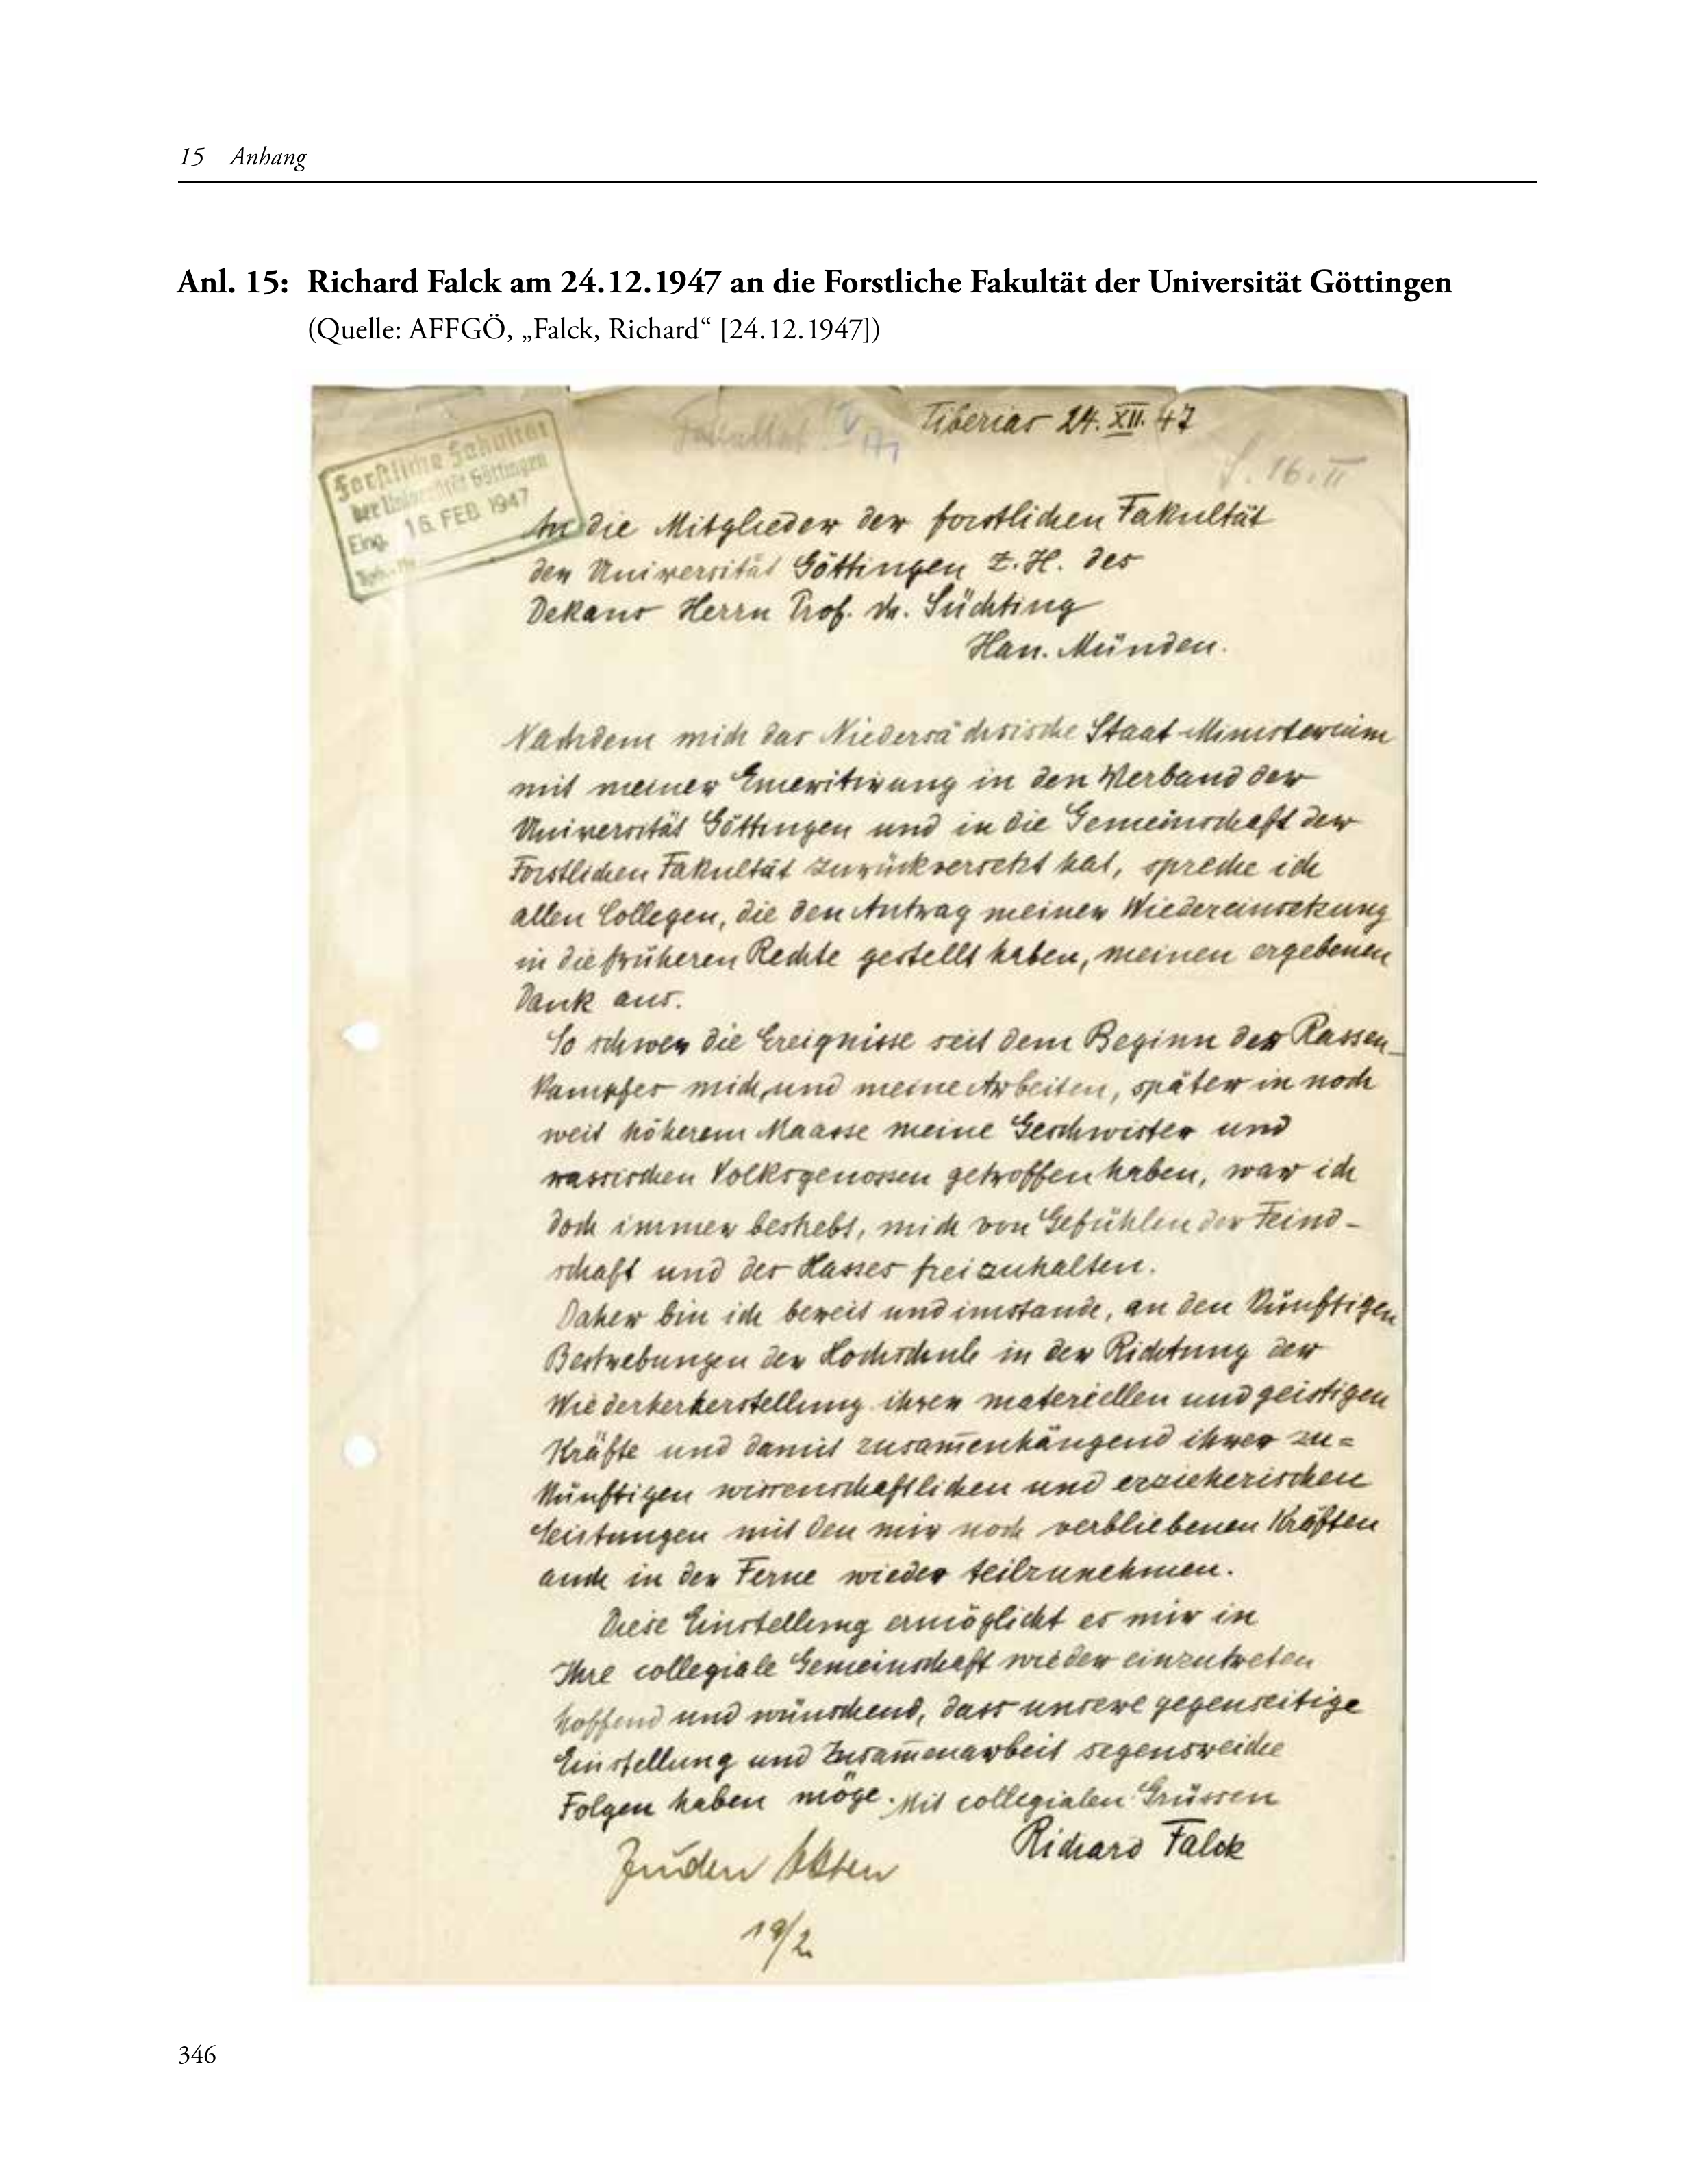 15 Anhang
Anl. 15: Richard Falck am 24.12.1947 an die Forstliche Fakultät der Universität Göttingen
(Quelle: AFFGÖ, „Falck, Richard“ [24.12.1947])
Tiberias 24. XII. 47
Fakultät
S. 16. II
Forstliche Fakultät
der Universität Göttingen
Eing. 16. FEB 1947
An die Mitglieder der forstlichen Fakultät
der Universität Göttingen z. H. des
Dekans Herrn Prof. Dr. Süchting
Han. Münden.
Nachdem mich das Niedersächsische Staat-Ministerium
mit meiner Emeritirung in den Verband der
Universität Göttingen und in die Gemeinschaft der
Forstlichen Fakultät zurückversetzt hat, spreche ich
allen Collegen, die den Antrag meiner Wiedereinsetzung
in die früheren Rechte gestellt haben, meinen ergebenen
Dank aus.
So schwer die Ereignisse seit dem Beginn des Rassen-
kampfes mich, und meine Arbeiten, später in noch
weit höherem Maasse meine Geschwister und
rassischen Volksgenossen getroffen haben, war ich
doch immer bestrebt, mich von Gefühlen der Feind-
schaft und des Hasses freizuhalten.
Daher bin ich bereit und imstande, an den künftigen
Bestrebungen der Hochschule in der Richtung der
Wiederherherstellung ihrer materiellen und geistigen
Kräfte und damit zusam̅enhängend ihrer zu=
künftigen wissenschaftlichen und erzieherischen
Leistungen mit den mir noch verbliebenen Kräften
auch in der Ferne wieder teilzunehmen.
Diese Einstellung ermöglicht es mir in
Ihre collegiale Gemeinschaft wieder einzutreten
hoffend und wünschend, dass unsere gegenseitige
Einstellung und Zusam̅enarbeit segensreiche
Folgen haben möge. Mit collegialen Grüssen
Richard Falck
Zu den Akten
19/2
346